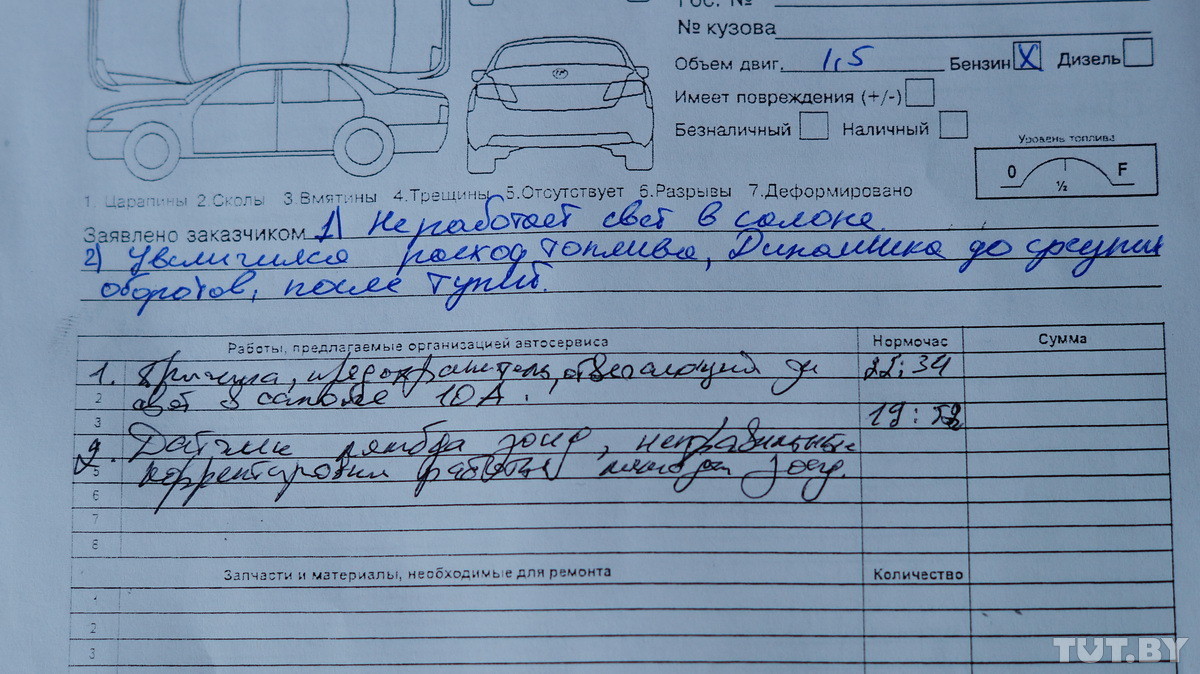 Гос. №
№ кузова
Объем двиг. 1,5 Бензин X Дизель
Имеет повреждения (+/-)
Безналичный Наличный
Уровень топлива
0 ½ F
1. Царапины 2.Сколы 3.Вмятины 4.Трещины 5.Отсутствует 6.Разрывы 7.Деформировано
Заявлено заказчиком 1) Не работает свет в салоне.
2) Увеличился расход топлива, Динамика до средних
оборотов, после тупит.
Работы, предлагаемые организацией автосервиса Нормочас Сумма
1. Причина, предохранитель, отвечающий за 22:34
2 свет в салоне 10А.
3 19:
2. Датчик лямбда зонд, неправильные
5 корректировки работы лямбда зонд.
6
7
8
Запчасти и материалы, необходимые для ремонта Количество
1
2
3
TUT.BY